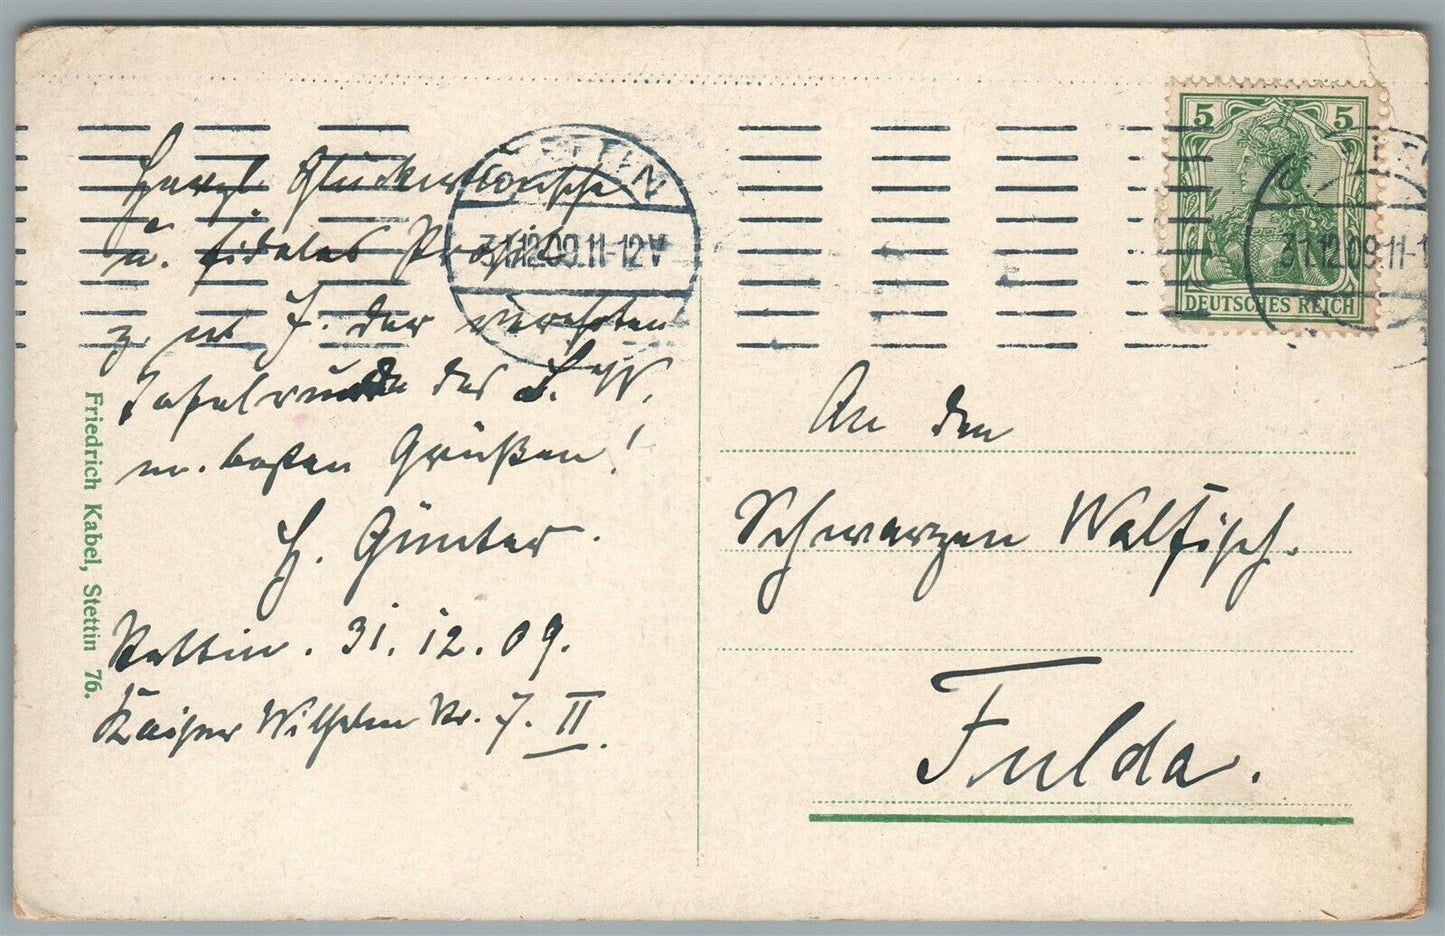 Herzl. Glückwünsche
u. fideles Prosit
z. n. J. der verehrten
Tafelrunde des
m. besten Grüßen!
H. Günter.
Stettin. 31.12.09.
Kaiser Wilhelm Str. 7. II.
Friedrich Kabel, Stettin 76.
STETTIN
31.12.09.11-12V
5 5
DEUTSCHES REICH
31.12.09.11-1
An den
Schwarzen Walfisch.
Fulda.